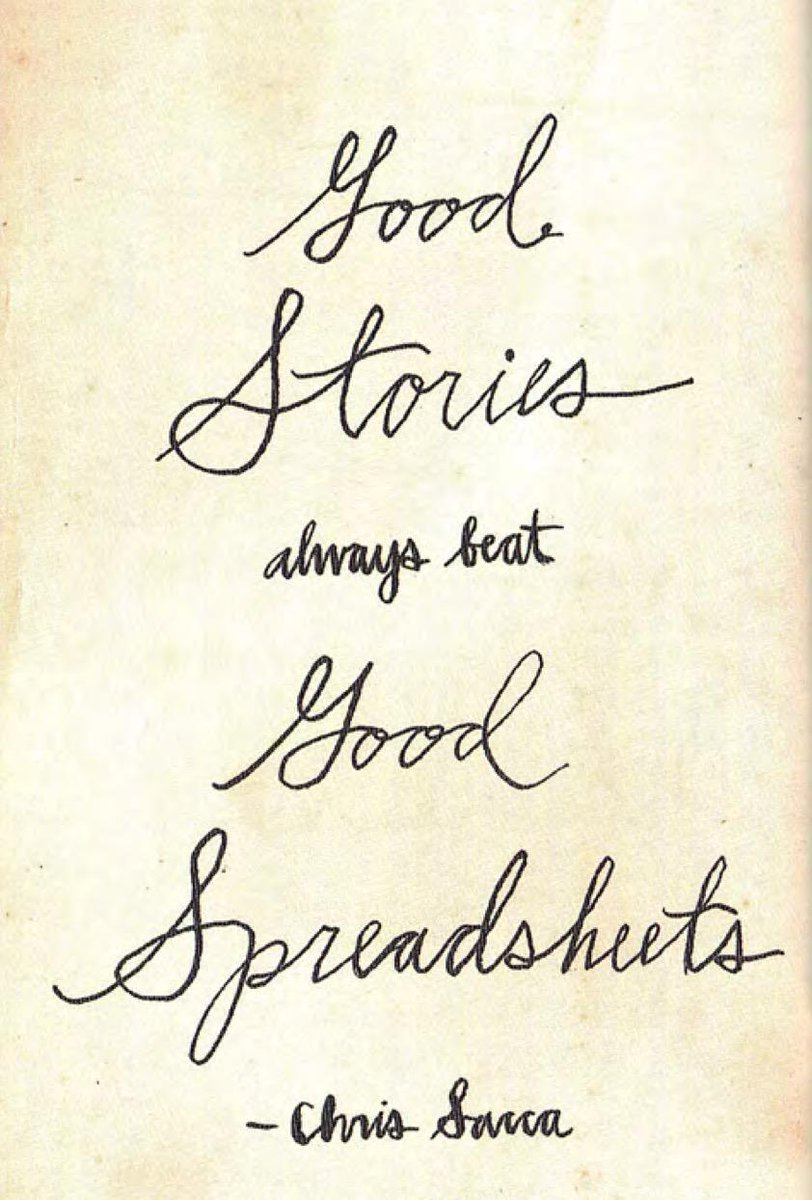 Good
Stories
always beat
Good
Spreadsheets
- Chris Sacca